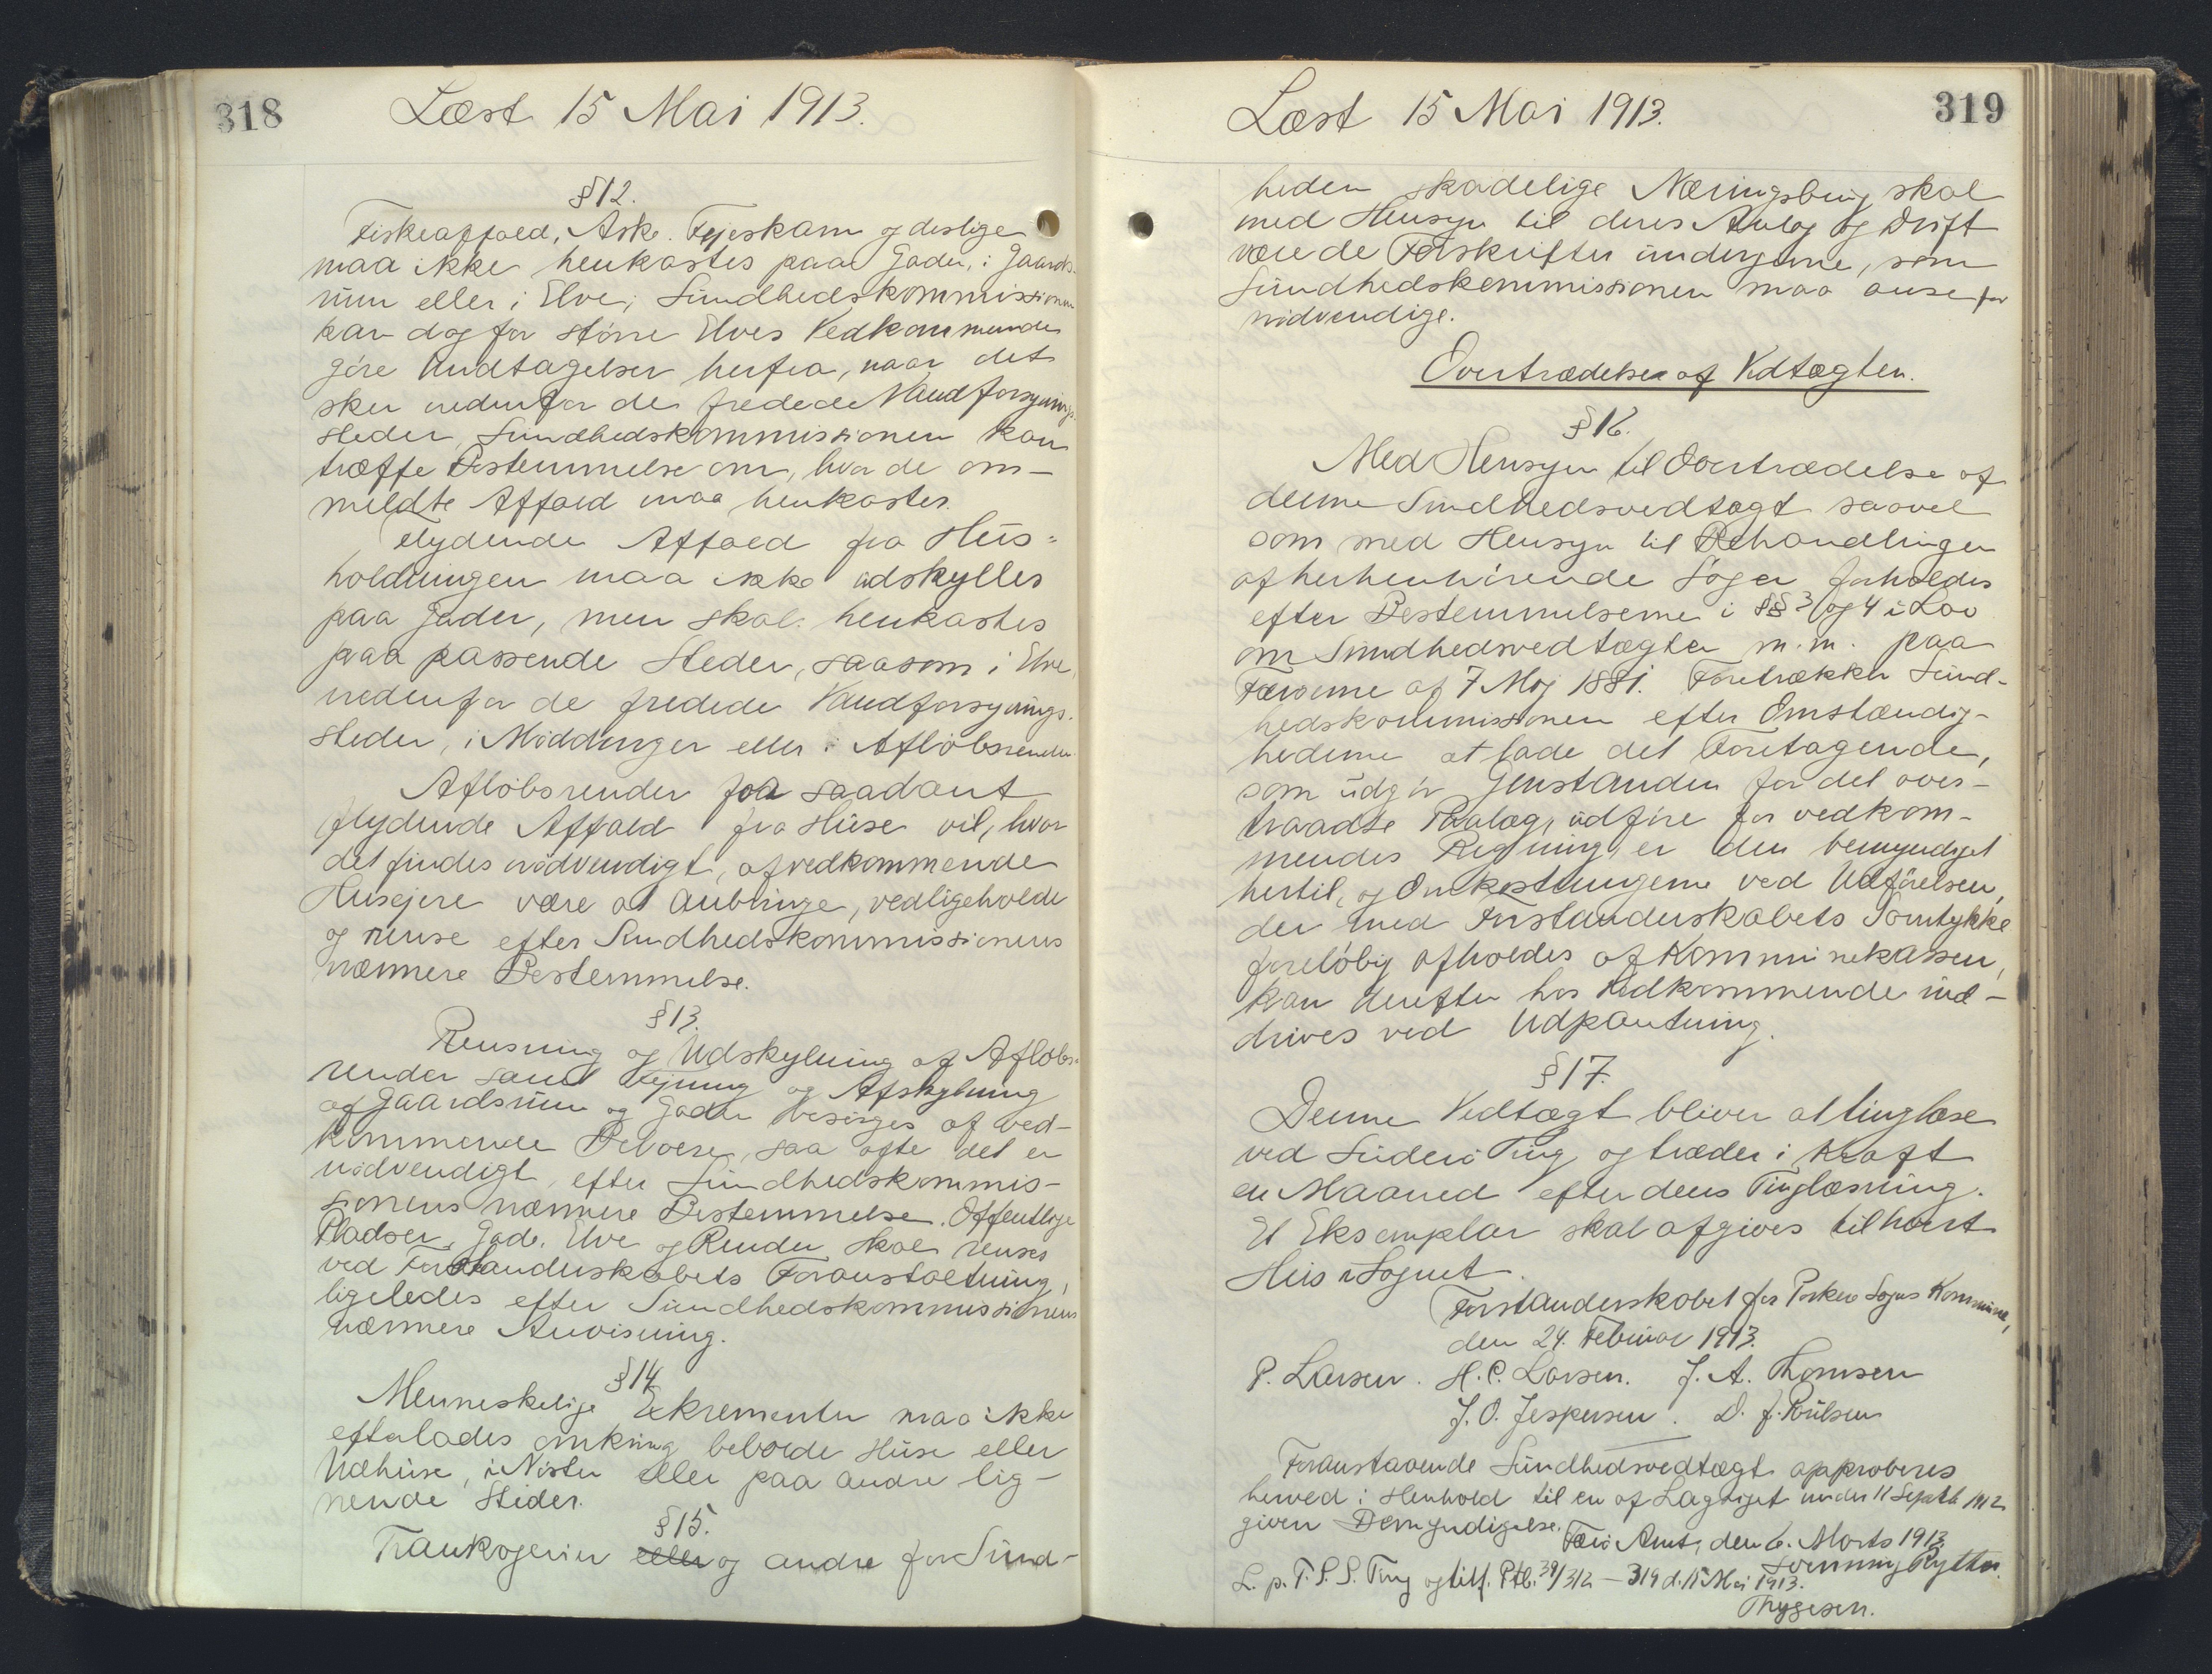 318
Læst 15 Mai 1913.
§12.
Fiskeaffald, Aske. Fejeskarn og deslige
maa ikke henkastes paa Gader, i Gaards-
rum eller i Elve; Sundhedskommissionen
kan dog for större Elves Vedkommende
göre Undtagelser herfra, naar det
sker nedenfor de fredede Vandforsynings-
steder, Sundhedskommissionen kan
træffe Bestemmelse om, hvor de om-
meldte Affald maa henkastes.
Flydende Affald fra Hus=
holdningen maa ikke udskylles
paa Gader, men skal henkastes
paa passende Steder, saasom i Elve,
nedenfor de fredede Vandforsynings-
steder, i Möddinger eller i Aflöbsrender
Aflöbsrender for saadant
flydende Affald fra Huse vil, hvor
det findes nödvendigt, af vedkommende
Husejere være at anbringe, vedligeholde
og rense efter Sundhedskommissionens
nærmere Bestemmelse.
§13.
Rensning og Udskylning af Aflöbs-
render samt Fejning og Afskylning
af Gaardsrum og Gader besörges af ved-
kommende Beboere, saa ofte det er
nödvendigt, efter Sundhedskommis-
sionens nærmere Bestemmelse. Offentlige
Pladser, Gade, Elve og Render skal renses
ved Forstanderskabets Foranstaltning,
ligeledes efter Sundhedskommissionens
nærmere Anvisning.
§14
Menneskelige Exkrementer maa ikke
efterlades omkring beboede Huse eller
Udhuse, i Nöster eller paa andre lig-
nende Steder.
§15.
Trankogerier eller og andre for Sund-
319
Læst 15 Mai 1913.
heden skadelige Næringsbrug skal
med Hensyn til deres Anlæg og Drift
være de Forskrifter undergivne, som
Sundhedskommissionen maa anse for
nödvendige.
Overtrædelse af Vedtægten.
§16.
Med Hensyn til Overtrædelse af
denne Sundhedsvedtægt saavel
som med Hensyn til Behandlingen
af herhenhörende Sager forholdes
efter Bestemmelserne i §§ 3 og 4 i Lov
om Sundhedsvedtægter m.m. paa
Færöerne af 7 Maj 1881. Foretrækker Sund-
hedskommissionen efter Omstændig-
hederne at lade det Foretagende,
som udgör Genstanden for det over-
traadte Paalæg, udföre for vedkom-
mendes Regning, er den bemyndiget
hertil, og Omkostningerne ved Udförelsen,
der med Forstanderskabets Samtykke
forelöbig afholdes af Kommunekassen,
kan derefter hos Vedkommende ind-
drives ved Udpantning.
§17.
Denne Vedtægt bliver at tinglæse
ved Suderö Ting og træder i Kraft
en Maaned efter dens Tinglæsning.
Et Eksemplar skal afgives til hvert
Hus i Sognet.
Forstanderskabet for Porkere Sogns Kommune,
den 24. Februar 1913.
P. Larsen. H. C. Larsen. J. A. Thomsen
J. O. Jespersen. D. J. Poulsen
Foranstaaende Sundhedsvedtægt approberes
herved i Henhold til en af Lagtinget under 11 Septb 1912
given Bemyndigelse.
Færö Amt, den 6. Marts 1913
Svenning Rytter.
L. p. T. S. S. Ting og tilf. Ptb. 39/312 – 319 d. 15 Mai 1913.
Thygesen.